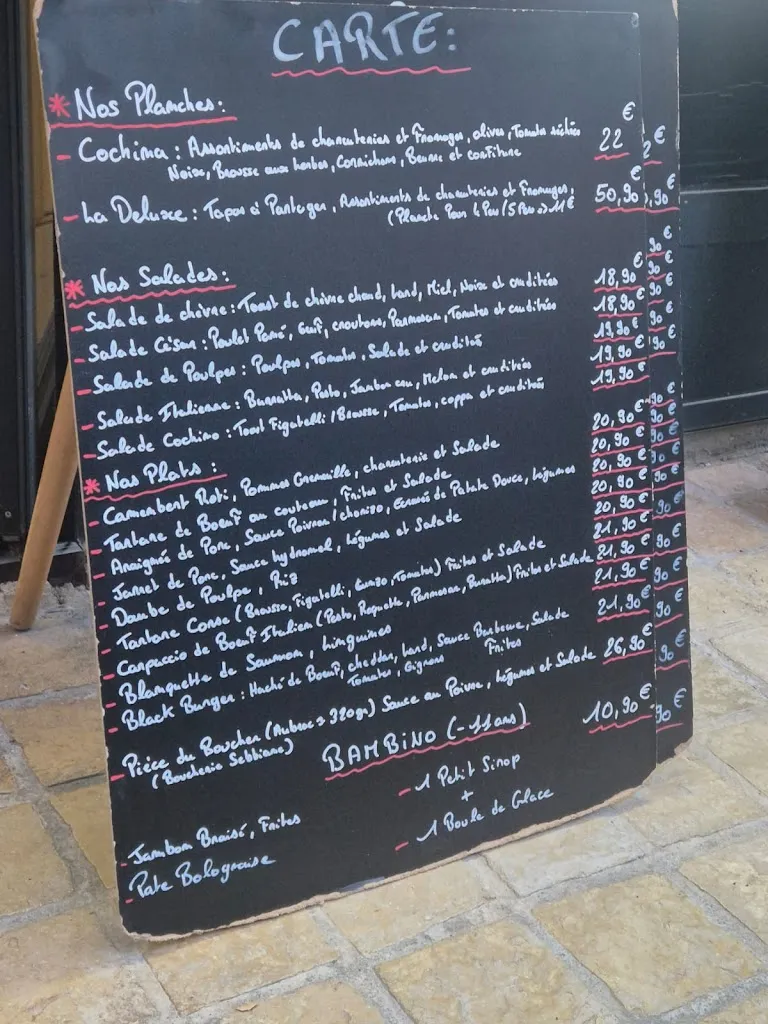 CARTE:
* Nos Planches:
- Cochina : Assortiments de charcuteries et Fromages, olives, Tomates séchées 22 €
Noix, Brousse aux herbes, Cornichons, Beurre et confiture
- La Deluxe : Tapas à Partager, Assortiments de charcuteries et Fromages, 50,90 €
(Planche Pour 4 Pers (5 Pers =) 11 €
* Nos Salades:
- Salade de chèvre : Toast de chèvre chaud, Lard, Miel, Noix et crudités 18,90 €
- Salade César : Poulet Pané, Oeuf, croutons, Parmesan, Tomates et crudités 18,90 €
- Salade de Poulpes : Poulpes, Tomates, Salade et crudités 19,90 €
- Salade Italienne : Burratta, Pesto, Jambon cru, Melon et crudités 19,90 €
- Salade Cochino : Toast Figatelli / Brousse, Tomates, coppa et crudités 19,90 €
* Nos Plats :
- Camembert Roti, Pommes Grenaille, charcuterie et Salade 20,90 €
- Tartare de Boeuf au couteau, Frites et Salade 20,90 €
- Araignée de Porc, Sauce Poivron / chorizo, Ecrasé de Patate Douce, Légumes 20,90 €
- Jarret de Porc, Sauce hydromel, Légumes et Salade 20,90 €
- Daube de Poulpe, Riz 20,90 €
- Tartare Corse (Brousse, Figatelli, Tomates) Frites et Salade 21,90 €
- Carpaccio de Boeuf Italien (Pesto, Roquette, Parmesan, Burratta) Frites et Salade 21,90 €
- Blanquette de Saumon, Linguines 21,90 €
- Black Burger : Haché de Boeuf, cheddar, Lard, Sauce Barbecue, Salade 21,90 €
Tomates, Oignons Frites
- Pièce du Boucher (Aubrac ≥ 320gr) Sauce au Poivre, Légumes et Salade 26,90 €
(Boucherie Sebbiano)
BAMBINO (-11 ans) 10,90 €
- 1 Petit Sirop
+
- 1 Boule de Glace
- Jambon Braisé, Frites
- Pate Bolognaise